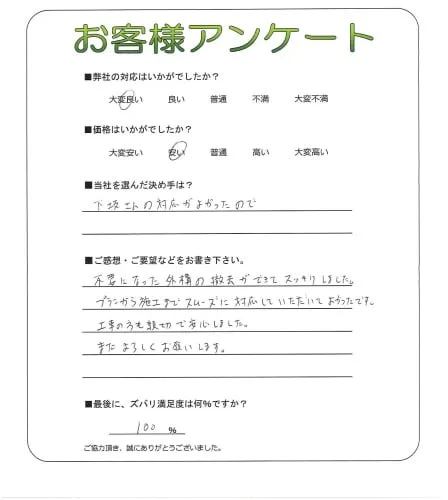 お客様アンケート
■弊社の対応はいかがでしたか？
大変良い 良い 普通 不満 大変不満
■価格はいかがでしたか？
大変安い 安い 普通 高い 大変高い
■当社を選んだ決め手は？
下坂さんの対応がよかったので
■ご感想・ご要望などをお書き下さい。
不要になった外構の撤去ができてスッキリしました。
プランから施工までスムーズに対応していただいてよかったです。
工事の方も親切で安心しました。
またよろしくお願いします。
■最後に、ズバリ満足度は何％ですか？
100 ％
ご協力頂き、誠にありがとうございました。